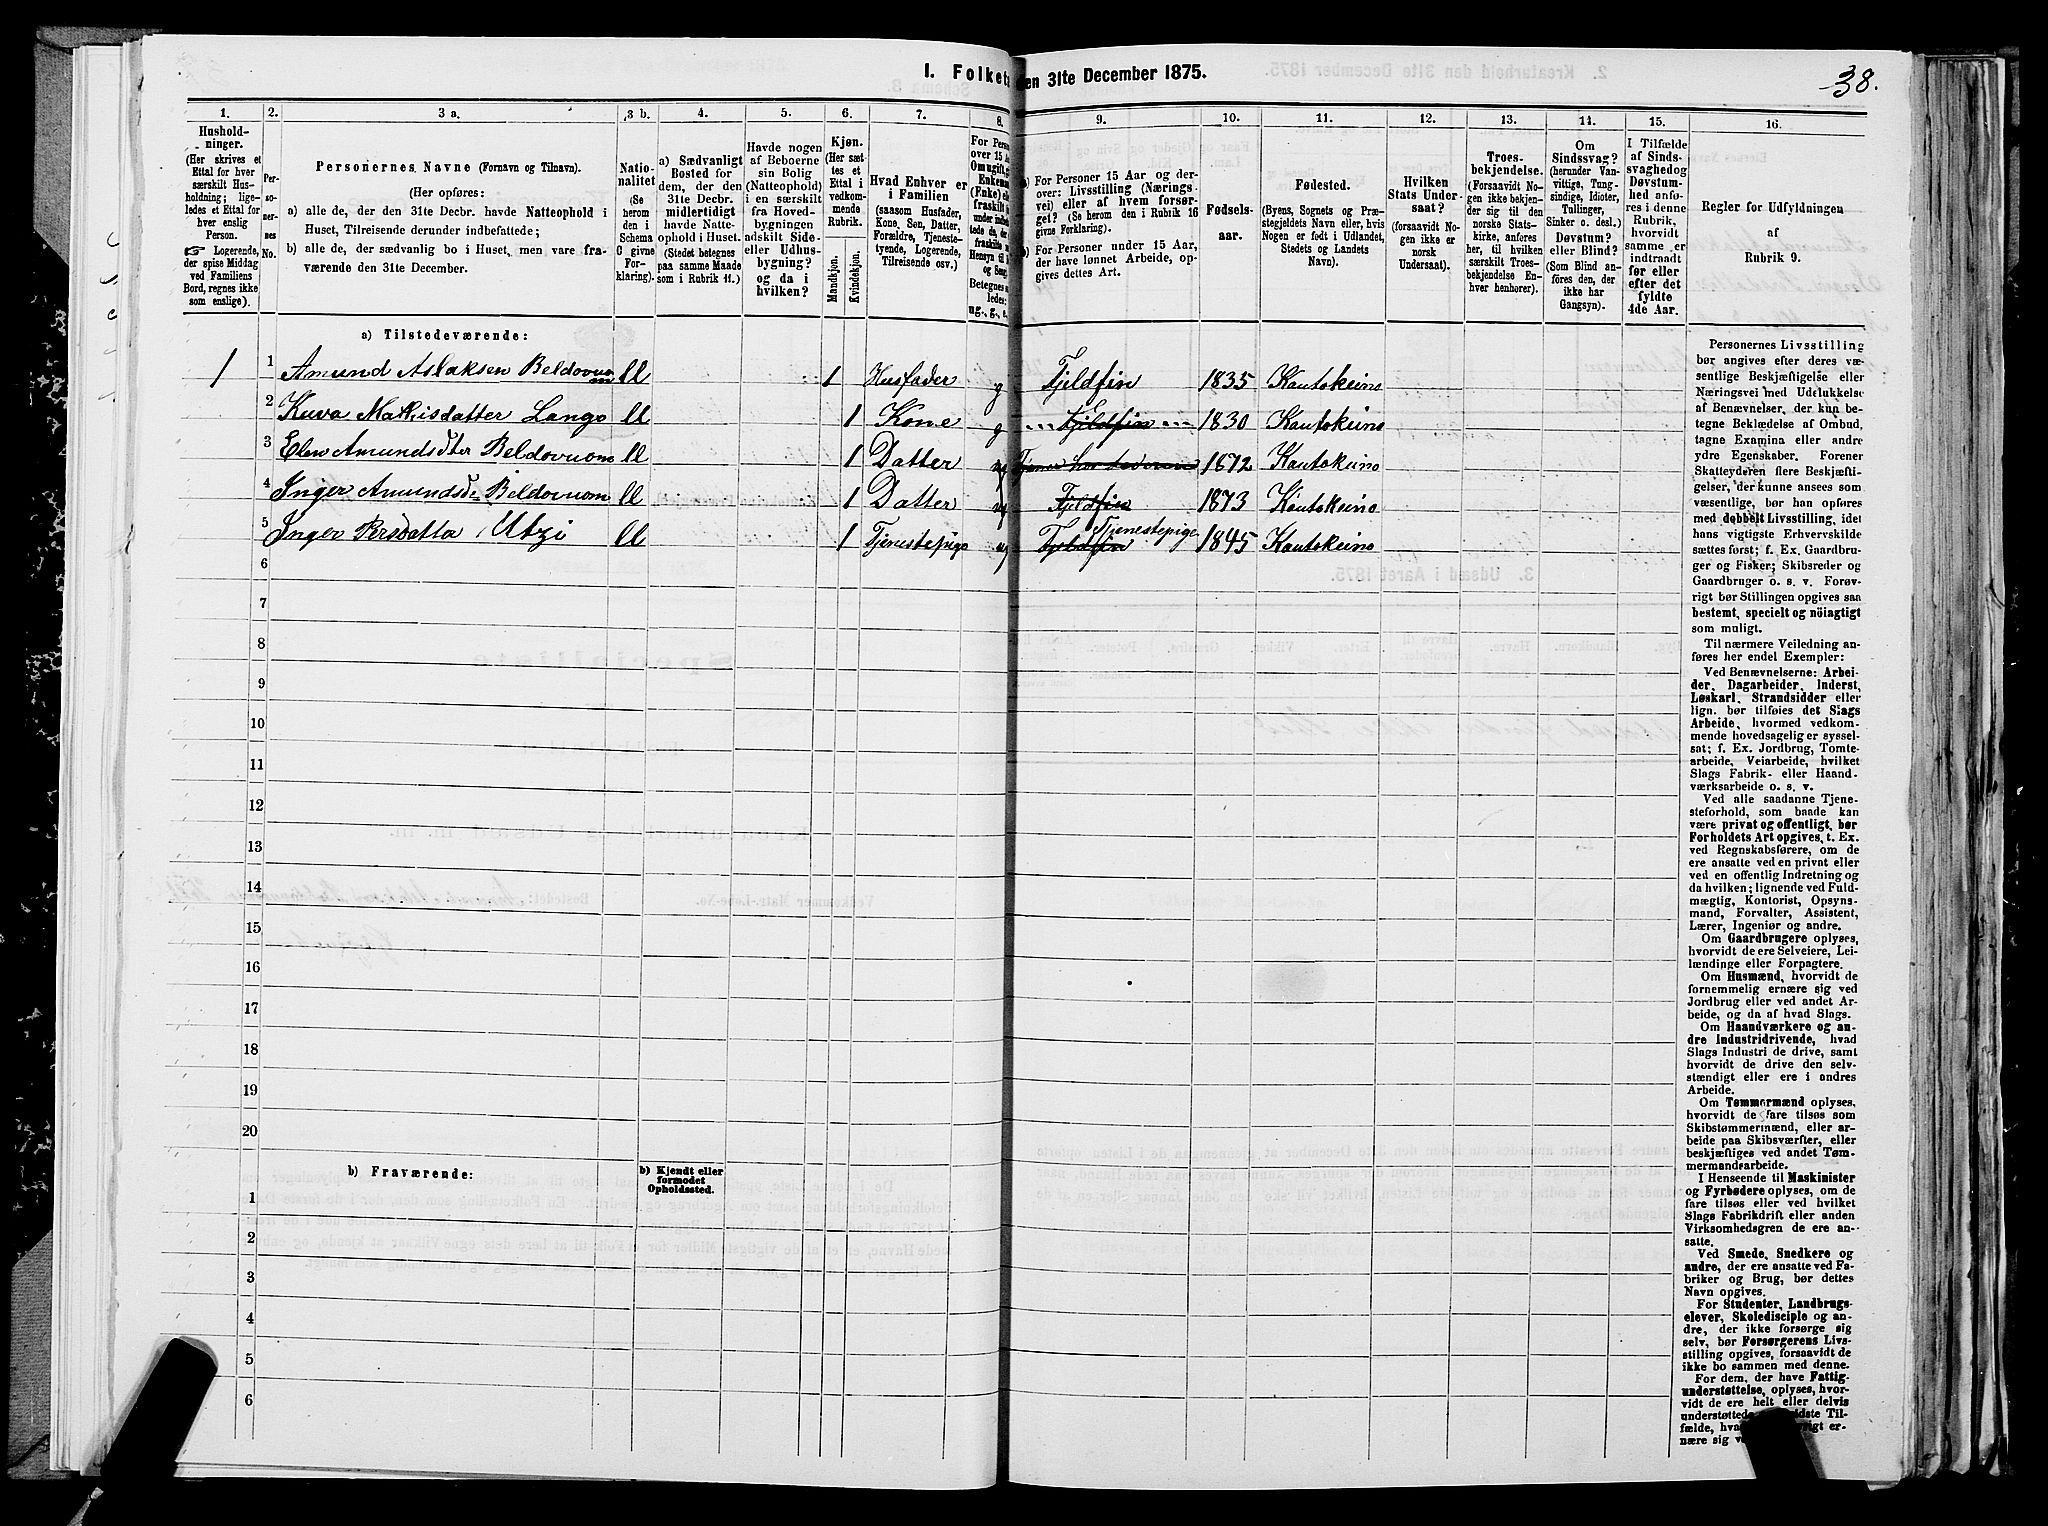 I. Folket
en 31te December 1875.
38.
1.
2.
3 a.
3 b.
4.
5.
6.
7.
8.
9.
10.
11.
12.
13.
14.
15.
16.
Hushold-
ninger.
(Her skrives et
Ettal for hver
særskilt Hus-
holdning; lige-
ledes et Ettal for
hver enslig
Person.
☞ Logerende,
der spise Middag
ved Familiens
Bord, regnes ikke
som enslige).
Per-
so-
ner-
nes
No.
Personernes Navne (Fornavn og Tilnavn).
(Her opføres:
a) alle de, der den 31te Decbr. havde Natteophold i
Huset, Tilreisende derunder indbefattede;
b) alle de, der sædvanlig bo i Huset, men vare fra-
værende den 31te December.
Natio-
nalitet
(Se
herom
den i
Schema
G givne
For-
klaring).
a) Sædvanligt
Bosted for
dem, der den
31te Decbr.
midlertidigt
havde Natte-
ophold i Huset.
(Stedet betegnes
paa samme Maade
som i Rubrik 11.)
Havde nogen
af Beboerne
sin Bolig
(Natteophold)
i en særskilt
fra Hoved-
bygningen
adskilt Side-
eller Udhus-
bygning?
og da i
hvilken?
Kjøn.
(Her sæt-
tes et
Ettal i
vedkom-
mende
Rubrik.
Mandkjøn.
Kvindekjøn.
Hvad Enhver er
i Familien
(saasom Husfader,
Kone, Søn, Datter,
Forældre, Tjeneste-
tyende, Logerende,
Tilreisende osv.)
For Person
over 15 Aa
Om ugift, g
Enkem
(Enke)
ug., g., e.
a) For Personer 15 Aar og der-
over: Livsstilling (Nærings-
vei) eller af hvem forsør-
get? (Se herom den i Rubrik 16
givne Forklaring).
b) For Personer under 15 Aar,
der have lønnet Arbeide, op-
gives dettes Art.
Fødsels-
aar.
Fødested.
(Byens, Sognets og Præ-
stegjeldets Navn eller, hvis
Nogen er født i Udlandet,
Stedets og Landets
Navn).
Hvilken
Stats Under-
saat?
(forsaavidt No-
gen ikke er
norsk
Undersaat).
Troes-
bekjendelse.
(Forsaavidt No-
gen ikke bekjen-
der sig til den
norske Stats-
kirke, anføres
her, til hvilken
særskilt Troes-
bekjendelse En-
hver henhører).
Om
Sindssvag?
(herunder Van-
vittige, Tung-
sindige, Idioter,
Tullinger,
Sinker o. desl.)
Døvstum?
eller Blind?
(Som Blind an-
føres den, der
ikke har
Gangsyn).
I Tilfælde
af Sinds-
svaghed og
Døvstum-
hed anfø-
res i denne
Rubrik,
hvorvidt
samme er
indtraadt
før eller
efter det
fyldte
4de Aar.
Regler for Udfyldningen
af
Rubrik 9.
a) Tilstedeværende:
1 1 Amund Aslaksen Beldovuom ll 1 Husfader g Fjeldfin 1835 Kautokeino
2 Kuva Mathisdatter Lango ll 1 Kone g Fjeldfin 1830 Kautokeino
3 Elen Amundsdter Beldovuom ll 1 Datter ug 1872 Kautokeino
4 Inger Amundsd Beldovuom ll 1 Datter ug Fjeldfin 1873 Kautokeino
5 Inger Persdatter Utzi ll 1 Tjenestepige ug Fjeldfin Tjenestepige 1845 Kautokeino
6
7
8
9
10
11
12
13
14
15
16
17
18
19
20
b) Fraværende:
b) Kjendt eller
formodet
Opholdssted.
1
2
3
4
5
6
Personernes Livsstilling
bør angives efter deres væ-
sentlige Beskjæftigelse eller
Næringsvei med Udelukkelse
af Benævnelser, der kun be-
tegne Beklædelse af Ombud,
tagne Examina eller andre
ydre Egenskaber. Forener
Skatteyderen flere Beskjæfti-
gelser, der kunne ansees som
væsentlige, bør han opføres
med dobbelt Livsstilling, idet
hans vigtigste Erhvervskilde
sættes først; f. Ex. Gaardbru-
ger og Fisker; Skibsreder og
Gaardbruger o. s. v. Forøv-
rigt bør Stillingen opgives saa
bestemt, specielt og nöiagtigt
som muligt.
Til nærmere Veiledning an-
føres her endel Exempler:
Ved Benævnelserne: Arbei-
der, Dagarbeider, Inderst,
Løskarl, Strandsidder eller
lign. bør tilføies det Slags
Arbeide, hvormed vedkom-
mende hovedsagelig er syssel-
sat; f. Ex. Jordbrug, Tomte-
arbeide, Veiarbeide, hvilket
Slags Fabrik- eller Haand-
værksarbeide o. s. v.
Ved alle saadanne Tjene-
steforhold, som baade kan
være privat og offentligt, bør
Forholdets Art opgives, t. Ex.
ved Regnskabsførere, om de
ere ansatte ved en privat eller
ved en offentlig Indretning og
da hvilken; lignende ved Fuld-
mægtig, Kontorist, Opsyns-
mand, Forvalter, Assistent,
Lærer, Ingeniør og andre.
Om Gaardbrugere oplyses,
hvorvidt de ere Selveiere, Lei-
lændinge eller Forpagtere.
Om Husmænd, hvorvidt de
fornemmelig ernære sig ved
Jordbrug eller ved andet Ar-
beide, og da af hvad Slags.
Om Haandværkere og an-
dre Industridrivende, hvad
Slags Industri de drive, samt
hvorvidt de drive den selv-
stændigt eller ere i andres
Arbeide.
Om Tømmermænd oplyses,
hvorvidt de fare tilsøs som
Skibstømmermænd, eller ar-
beide paa Skibsværfter, eller
beskjæftiges ved andet Tøm-
mermandsarbeide.
I Henseende til Maskinister
og Fyrbødere oplyses, om de
fare tilsøs eller ved hvilket
Slags Fabrikdrift eller anden
Virksomhedsgren de ere an-
satte.
Ved Smede, Snedkere og
andre, der ere ansatte ved Fa-
briker og Brug, bør dettes
Navn opgives.
For Studenter, Landbrugs-
elever, Skoledisciple og an-
dre, der ikke forsørge sig
selv, bør Forsørgerens Livs-
stilling opgives, forsaavidt de
ikke bo sammen med denne.
For dem, der have Fattig-
understøttelse, oplyses, hvor-
vidt de ere helt eller delvis